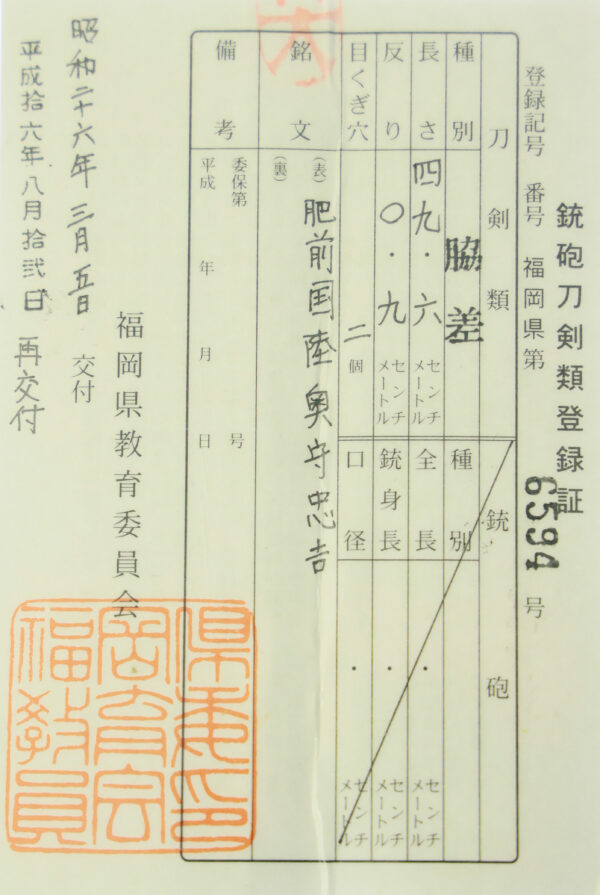 銃砲刀剣類登録証
登録記号 番号 福岡県第 6594 号
刀剣類 銃砲
種別 脇差 種別
長さ 四九・六 センチメートル 全長 ・ センチメートル
反り 〇・九 センチメートル 銃身長 ・ センチメートル
目くぎ穴 二 個 口径 ・ センチメートル
銘文 (表) 肥前国陸奥守忠吉
(裏)
備考 委保第 号
平成 年 月 日
福岡県教育委員会
昭和二十六年三月五日 交付
平成拾六年八月拾弐日 再交付
県委印
岡育会
福教員